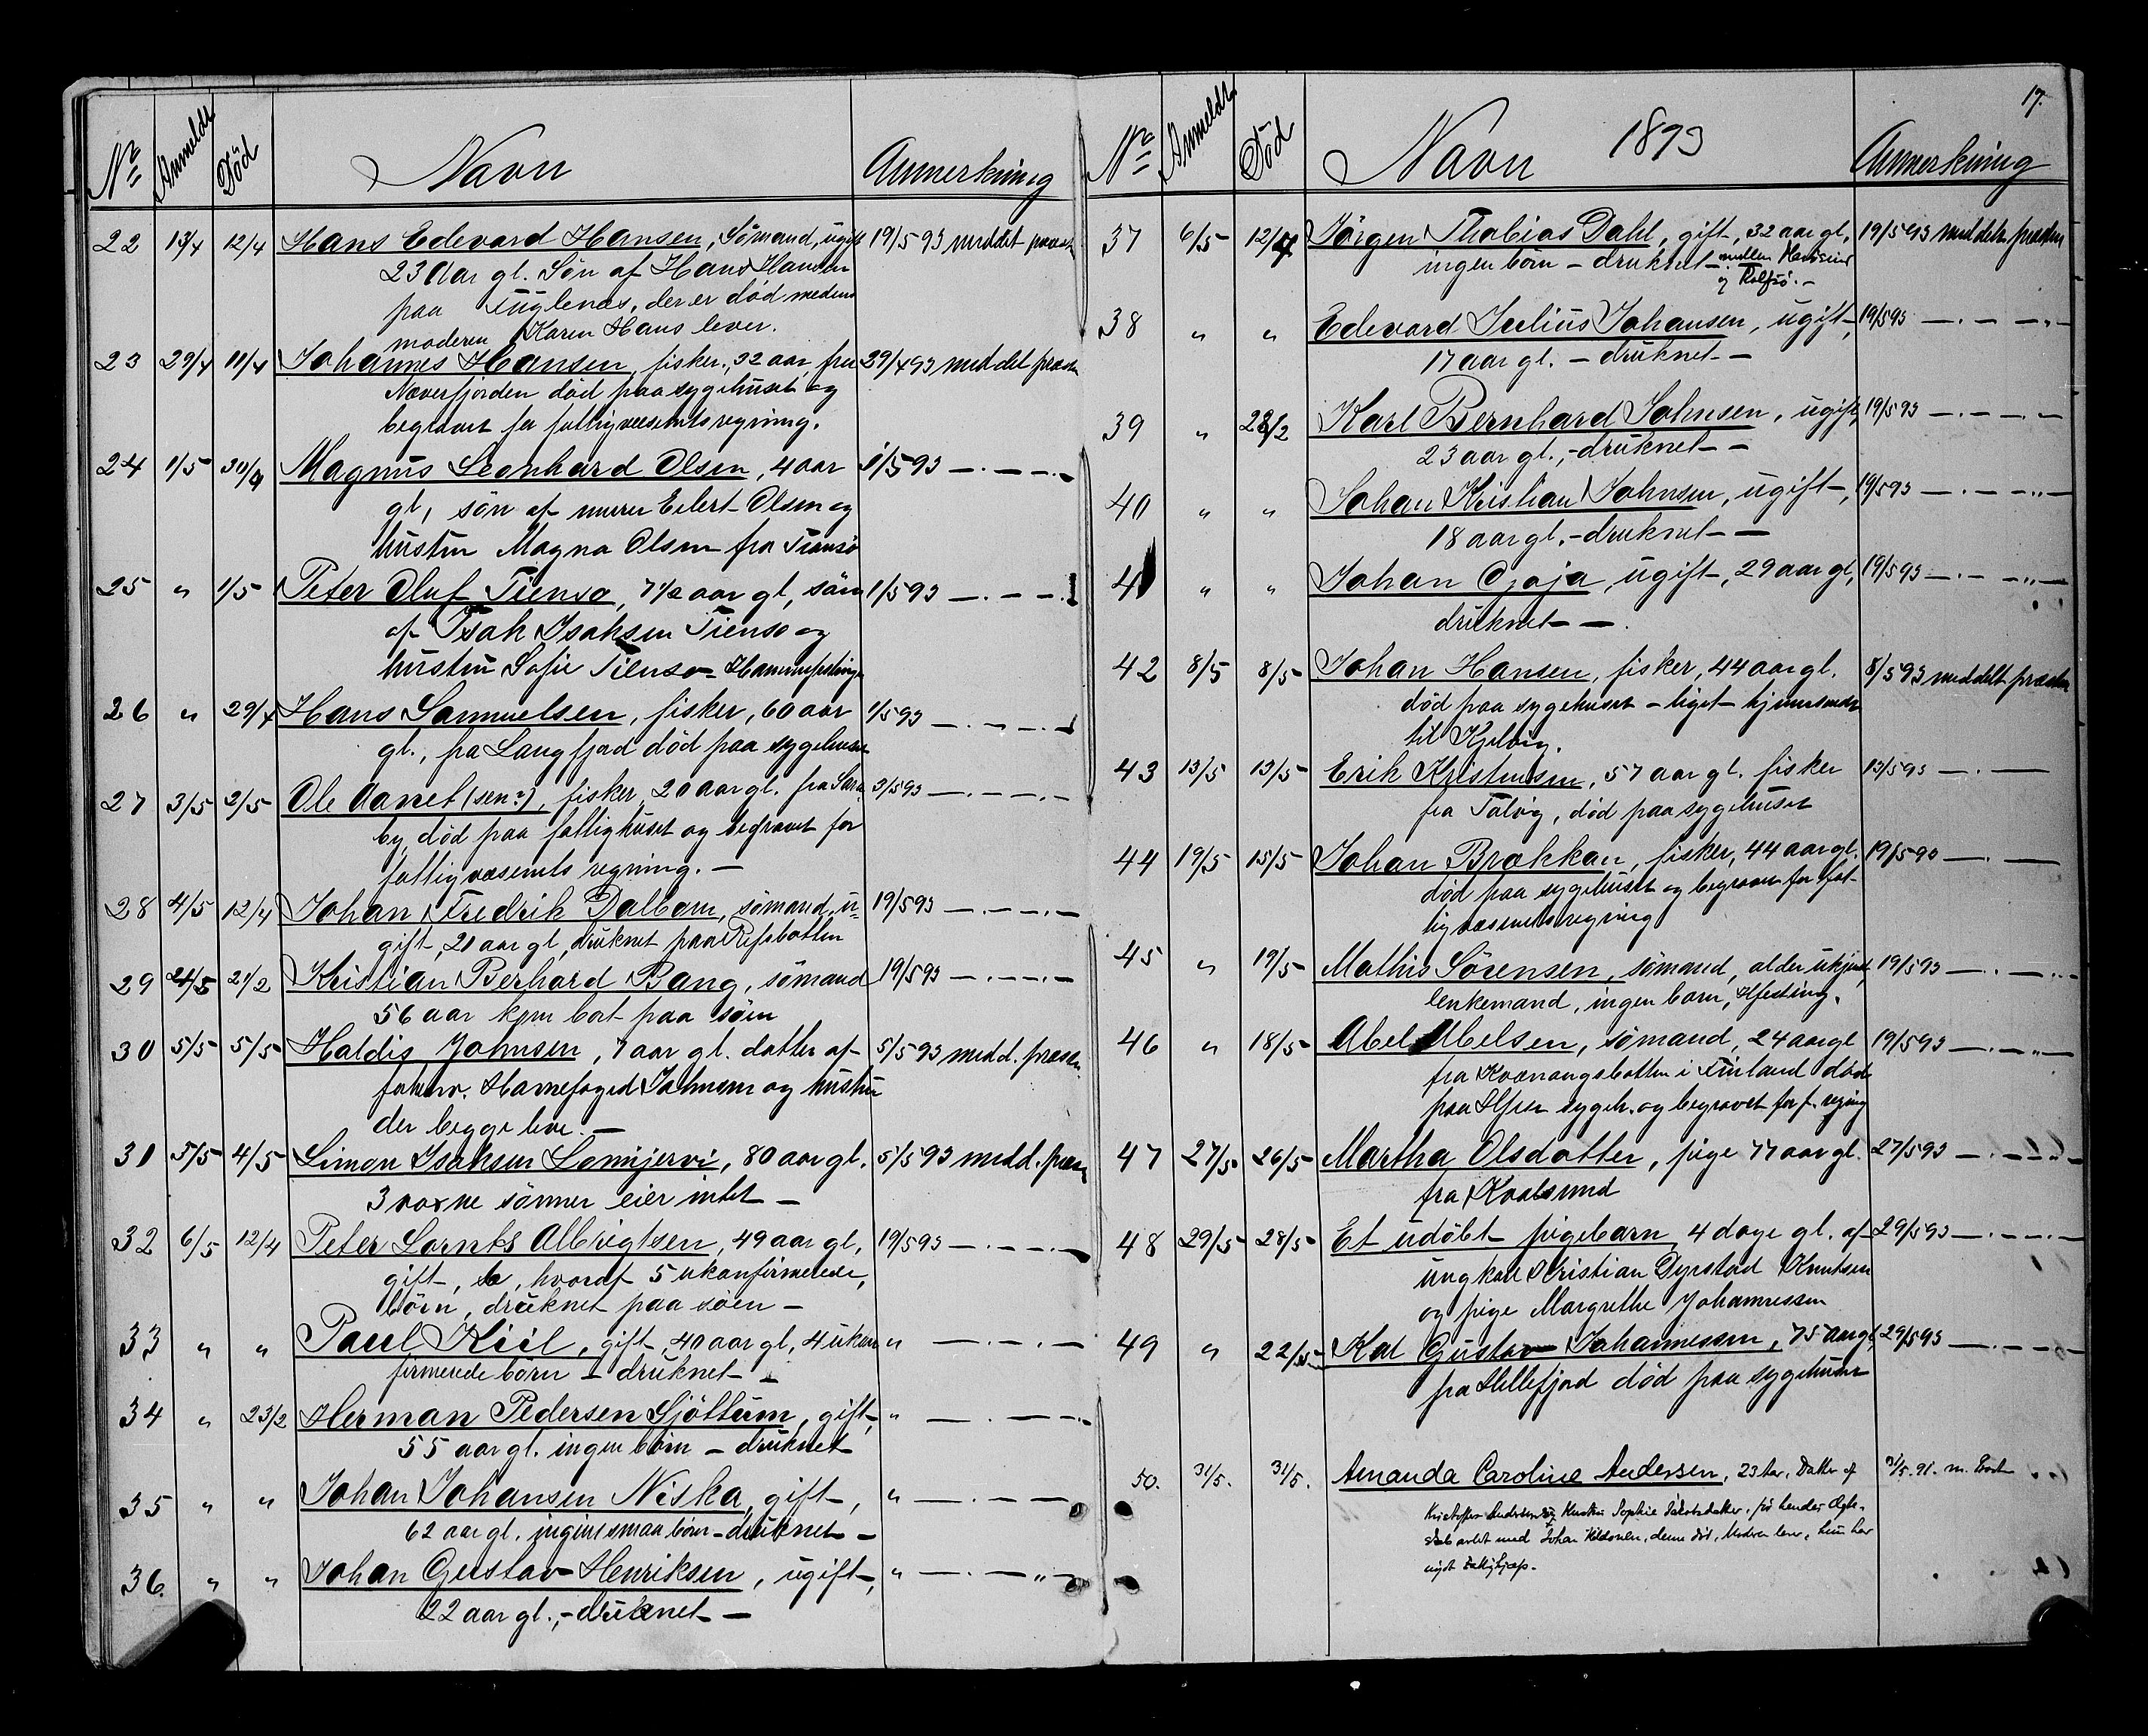 No Anmeldt Död Navn Anmerkning
22 13/4 12/4 Hans Edevard Hansen, Sömand, ugift 19/5 93 meddelt præst
23 Aar gl. Søn af Hans Hansen
paa Fuglenæs, der er död medens
moderen Karen Hans lever.
23 29/4 11/4 Johannes Hansen, fisker, 32 aar, fra 29/4 93 meddelt præsten
Næverfjorden död paa sygehuset og
begravet for fattigvæsenets regning.
24 1/5 30/4 Magnus Leonhard Olsen, 4 aar 1/5 93 —.—.—
gl, sön af murer Eilert Olsen og
hustru Magna Olsen fra
25 " 1/5 Peter Oluf Tienso, 7 1/2 aar gl, sön 1/5 93 —.—.—
af Isak Isaksen Tienso og
hustru Sofie Tienso
26 " 29/4 Hans Samuelsen, fisker, 60 aar 1/5 93 —.—.—
gl., fra Langfjord död paa sygehuset
27 3/5 2/5 Ole Aanet (sen?), fisker 20 aar gl. fra 3/5 93 —.—.—
by, död paa fattighuset og begravet for
fattigvæsenets regning. —
28 4/5 12/4 Johan Fredrik Dalbom, sömand, u- 19/5 93 —.—.—
gift, 21 aar gl, druknet paa Refsbotten
29 4/5 21/2 Kristian Berhard Bang, sömand 19/5 93 —.—.—
56 aar kom bort paa söen
30 5/5 5/5 Haldis Johnsen, 7 aar gl. datter af 5/5 93 medd. præsten
Havnefoged Johnsen og hustru
der begge leve. —
31 5/5 4/5 Simon Isaksen Lomjervi, 80 aar gl. 5/5 93 medd. præsten
3 voxne sönner eier intet —
32 6/5 12/4 Peter Lornts Albrigtsen, 49 aar gl, 19/5 93 —.—.—
gift, hvoraf 5 ukonfirmerede,
börn, druknet paa söen —
33 " " Paul Kiil, gift, 40 aar gl, 4 ukon " —.—.—
firmerede börn — druknet —
34 " 23/2 Herman Pedersen Sjöttum, gift, " —.—.—
55 aar gl. ingen börn — druknet
35 " " Johan Johansen Niska, gift, " —.—.—
62 aar gl. ingen smaa börn — druknet —
36. " " Johan Gustav Henriksen, ugift, " —.—.—
22 aar gl., — druknet —
17.
No Anmeldt Död Navn 1893 Anmerkning
37 6/5 12/4 Jörgen Thobias Dahl, gift, 32 aar gl, 19/5 93 meddelt præsten
ingen börn — druknet — mellem
og Rolfsö. —
38 " " Edevard Julius Johansen, ugift, 19/5 93 —.—.—
17 aar gl. — druknet —
39 " 23/2 Karl Bernhard Johnsen, ugift, 19/5 93 —.—.—
23 aar gl., — druknet —
40 " " Johan Kristian Johnsen, ugift, 19/5 93 —.—.—
18 aar gl. — druknet —
41 " " Johan Gjaja, ugift, 29 aar gl, 19/5 93 —.—.—
druknet —.
42 8/5 8/5 Johan Hansen, fisker, 44 aar gl. 8/5 93 meddelt præsten
död paa sygehuset — liget hjemsendt
til Kjelvig.
43 13/5 13/5 Erik Kristensen, 57 aar gl. fisker 13/5 93 —.—
fra Talvig, död paa sygehuset
44 19/5 15/5 Johan Brakkan, fisker, 44 aar gl. 19/5 93 —.—
död paa sygehuset og begravet for fat-
tigvæsenets regning
45 " 19/5 Mathis Sörensen, sömand, alder ukjent, 19/5 93 —.—.—
enkemand, ingen barn, Hfesting.
46 " 18/5 Abel Abelsen, sömand, 24 aar gl 19/5 93 —.—.—
fra Kvænangsbotten i Finland död
paa Hfest sygeh. og begravet for f. regning
47 27/5 26/5 Martha Olsdatter, pige 77 aar gl. 27/5 93 —.—.—
fra Kvalsund
48 29/5 28/5 Et udöbt pigebarn 4 dage gl. af 29/5 93 —.—.—
ungkarl Kristian Dyrstad Knutsen
og pige Margrethe Johannessen
49 " 22/5 Karl Gustav Johannessen, 75 aar gl, 29/5 93 —.—.—
fra Hellefjord död paa sygehuset
50. 31/5. 31/5. Amanda Caroline Andersen, 23 Aar, Datter af 31/5. 91. m.
Kristoffer Andersen og Hustru Sophie Jakobsdatter, før hendes Ægte-
skab avlet med Johan, denne död, Modren lever, hun har
nydt Fattighjælp.